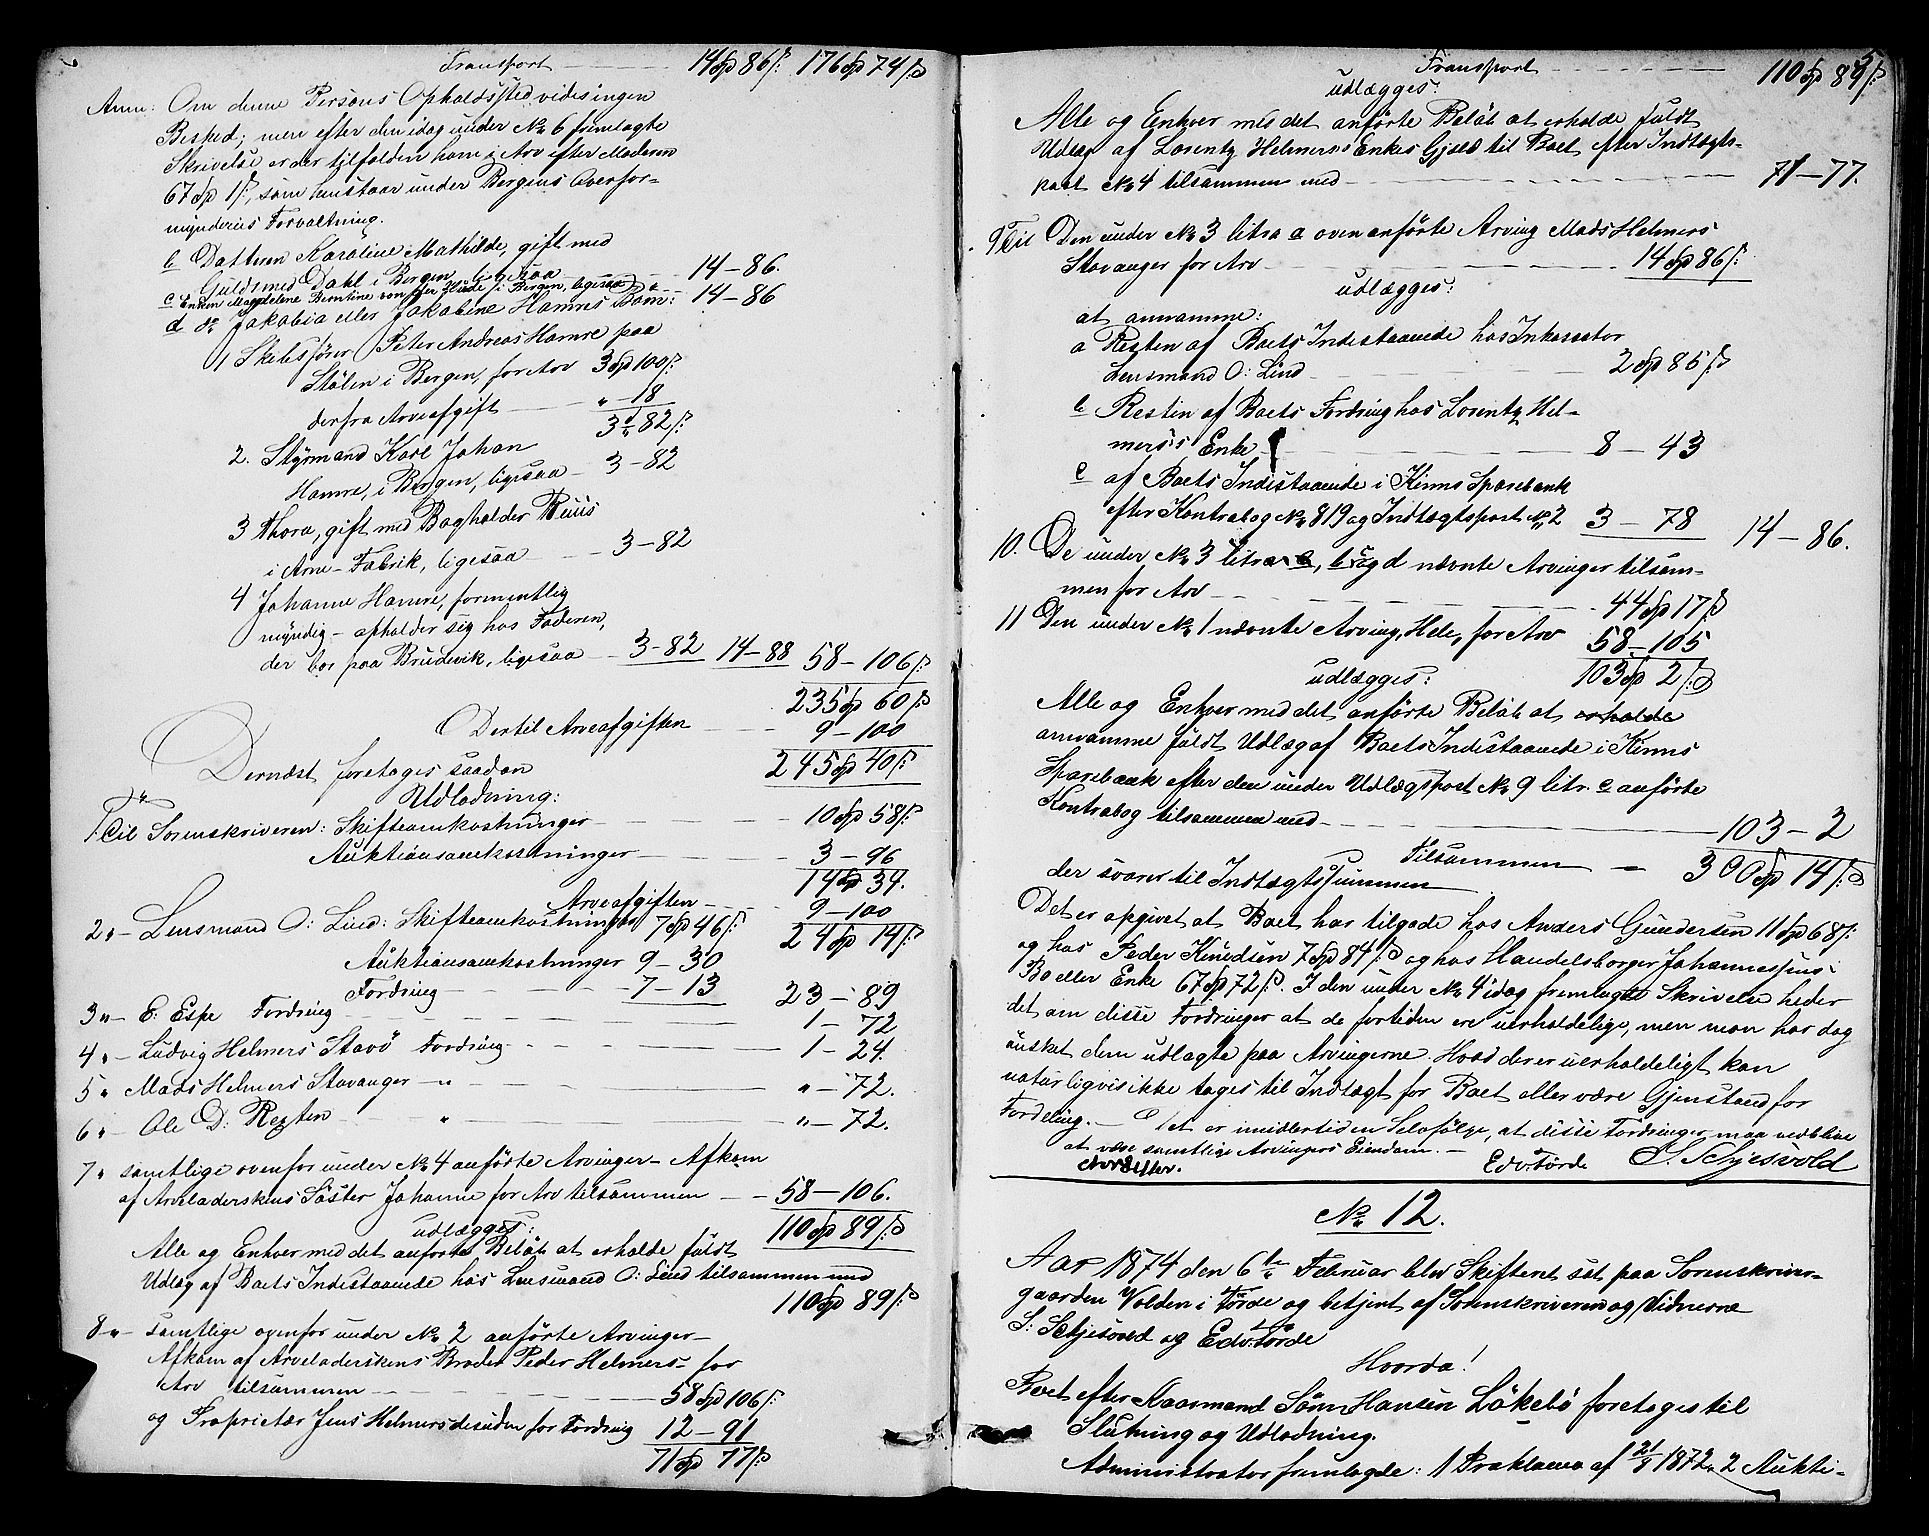 Transport 14 Spd 86 ß: 176 Spd 74 ß
Anm: Om denne Persons Opholdssted vides ingen
Besked; men efter den idag under No 6 fremlagte
Skrivelse er der tilfalden ham i Arv efter Moderen
67 Spd 1 ß, som henstaar under Bergens Overfor-
mynderies Forvaltning.
b Datteren Karoline Mathilde, gift med
Guldsmed Dahl i Bergen, ligesaa 14-86.
c Enken Magdelene Berntine von der Hude i Bergen, ligesaa
d do Jakobia eller Jakobine Hamres Børn: 14-86
1 Skibsfører Peter Andreas Hamre paa
Stølen i Bergen, for Arv 3 Spd 100 ß:
derfra Arveafgift " - 18
3 - 82 ß:
2. Styrmand Karl Johan
Hamre, i Bergen, ligesaa 3-82
3 Thora, gift med Bogholder
i Arne-Fabrik, ligesaa 3-82
4 Johanne Hamre, formentlig
myndig - opholder sig hos Faderen,
der bor paa Brudevik, ligesaa 3-82 14-88 58-106 ß:
235 Spd 60 ß
Dertil Arveafgiften 9-100
Dernæst foretoges saadan 245 Spd 40 ß:
Udlodning:
1 Til Sorenskriveren: Skifteomkostninger 10 Spd 58 ß:
Auktionsomkostninger 3-96
14 Spd 34.
Arveafgiften 9-100
2 " - Lensmand O: Lind: Skifteomkostninger 7 Spd 46 ß: 24 Spd 14 ß
Auktionsomkostninger 9-30
Fordring 7-13 23-89
3 " - E. Espe Fordring 1-72
4 " - Ludvig Helmers Stavø Fordring 1-24.
5 " Mads Helmers Stavanger - " " - 72.
6 " - Ole D: Røsten " " - 72.
7 " samtlige ovenfor under No 4 anførte Arvinger - Afkom
af Arveladerskens Søster Johanne for Arv tilsammen 58-106.
udlægges: 110 Spd 89 ß
Alle og Enhver med det anførte Beløb at erholde fuldt
Udlæg af Boets Indestaaende hos Lensmand O: Lind tilsammen med
110 Spd 89 ß:
8 " - Samtlige ovenfor under No 2 anførte Arvinger -
Afkom af Arveladerskens Broder Peder Helmers - for
Arv tilsammen 58 Spd 106 ß:
og Proprietær Jens Helmers desuden for Fordring 12-91
71 Spd 77 ß
Transport 110 Spd 89 ß:
udlægges:
Alle og Enhver med det anførte Beløb at erholde fuldt
Udlæg af Lorentz Helmers's Enkes Gjæld til Boet efter Indtægts-
post No 4 tilsammen med 71-77.
9 Til Den under No 3 litra a ovenanførte Arving Mads Helmers
Stavanger for Arv 14 Spd 86 ß:
udlægges:
at annamme:
a Resten af Boets Indestaaende hos Inkassator
Lensmand O: Lind 2 Spd 85 ß
b Resten af Boets Fordring hos Lorentz Hel-
mers's Enke 8-43
c af Boets Indestaaende i Kinns Sparebank
efter Kontrabog No 819 og Indtægtspost No 2 3-78 14-86.
10. De under No 3 litra b, c og d nævnte Arvinger tilsam-
men for Arv 44 Spd 17 ß
11 Den under No 1 nævnte Arving, Hele, for Arv 58-105
udlægges: 103 Spd 2 ß:
Alle og Enhver med det anførte Beløb at erholde
annamme fuldt Udlæg af Boets Indestaaende i Kinns
Sparebank efter den under Udlægspost No 9 litr. c anførte
Kontrabog tilsammen med 103-2
Tilsammen 300 Spd 14 ß
der svarer til Indtægtssummen
Det er opgivet at Boet har tilgode hos Anders Gundersen 11 Spd 68 ß:
og hos Peder Knudsen 7 Spd 84 ß og hos Handelsborger Johannessens
Bo eller Enke 67 Spd 72 ß. I den under No 4 idag fremlagte Skrivelse heder
det om disse Fordringer at de for tiden ere uerholdelige, men man har dog
ønsket dem udlagte paa Arvingerne. Hvad der er uerholdeligt kan
naturligvis ikke tages til Indtægt for Boet eller være Gjenstand for
Fordeling. - Det er imidlertid en Selvfølge, at disse Fordringer maa vedblive
at være samtlige Arvingers Eiendom. -
Edv: Førde S. Schjesvold
No 12.
Aar 1874 den 6te Februar blev Skifteret sat paa Sorenskriver-
gaarden Volden i Førde og betjent af Sorenskriveren og Vidnerne
S: Schjesvold og Edv: Førde
Hvorda!
Boet efter Kaarmand Søren Hansen Løkebø foretoges til
Slutning og Udlodning.
Administrator fremlagde: 1 Proklama af 21/5 1872, 2 Aukti-